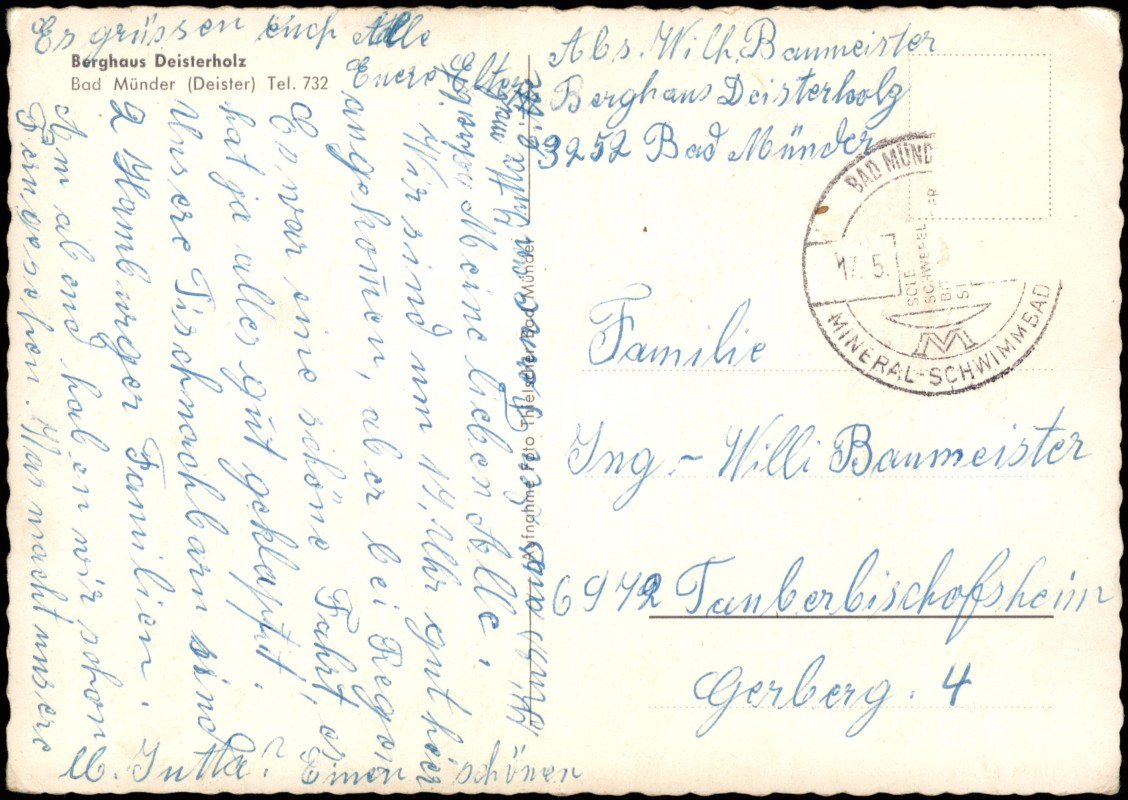 Berghaus Deisterholz
Bad Münder (Deister) Tel. 732
Meine lieben Alle.
Wir sind um 14, Uhr gut hier
angekom̄en, aber bei Regen
Es war eine schöne Fahrt, es
hat ja alles gut geklappt.
Unsere Tischnachbarn sind
2 Hamburger Familien.
Am abend haben wir schon
Ferngesehen. Was macht unsere
lb. Jutta? Einen schönen
Es grüssen euch Alle
Euere Eltern
Aufnahme Foto Thielscher Bad Münder
Abs. Wilh. Baumeister
Berghaus Deisterholz
3252 Bad Münder
BAD MÜND
17. 5.
SCHWEFEL
MINERAL-SCHWIMMBAD
M
Familie
Ing - Willi Baumeister
6972 Tauberbischofsheim
Gerberg. 4